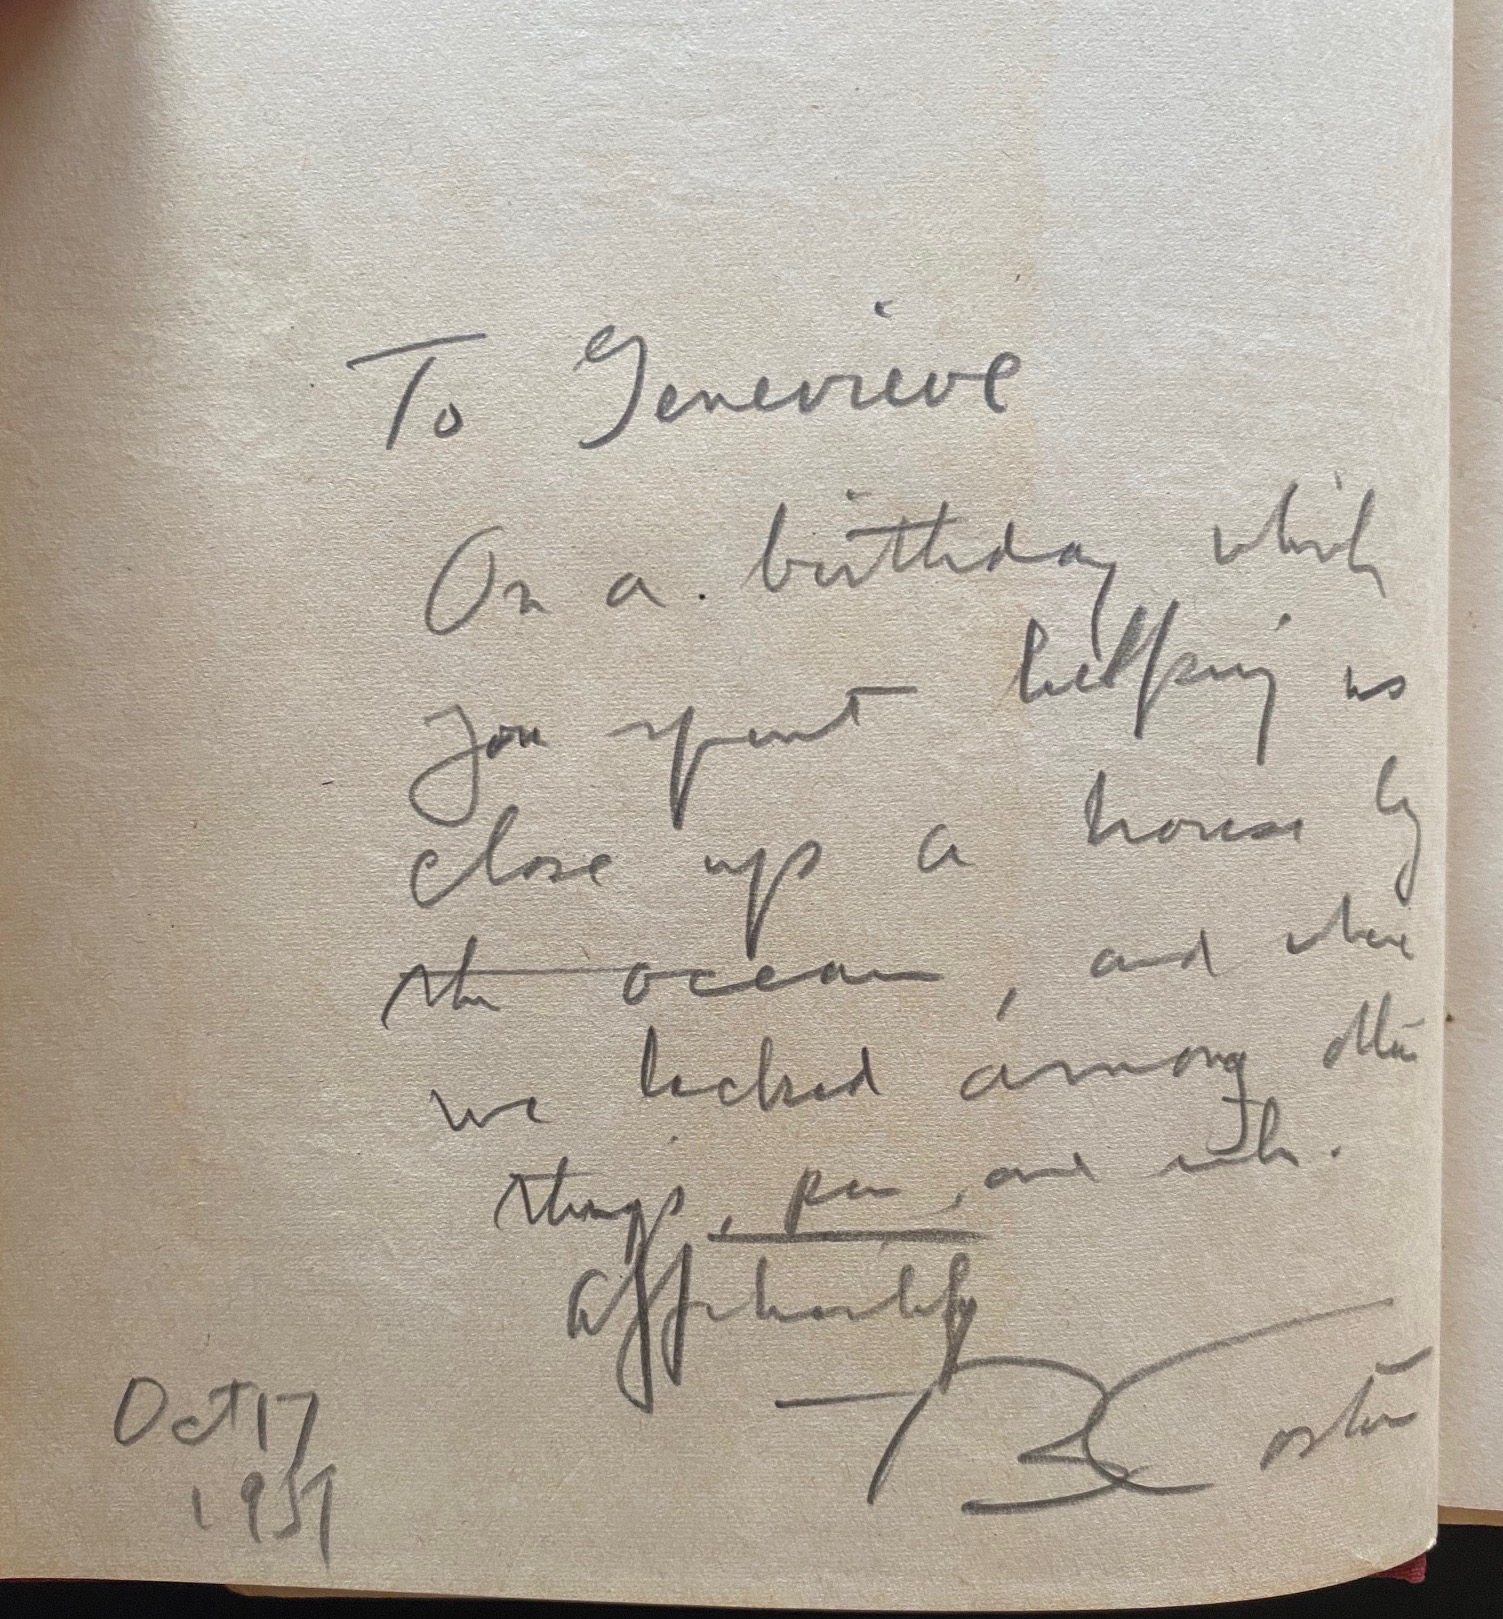 To Genevieve
On a birthday which
you spent helping us
close up a house by
the ocean, and where
we lacked among other
things, pen, and ink.
Affectionately
T B Costain
Oct 17
1957